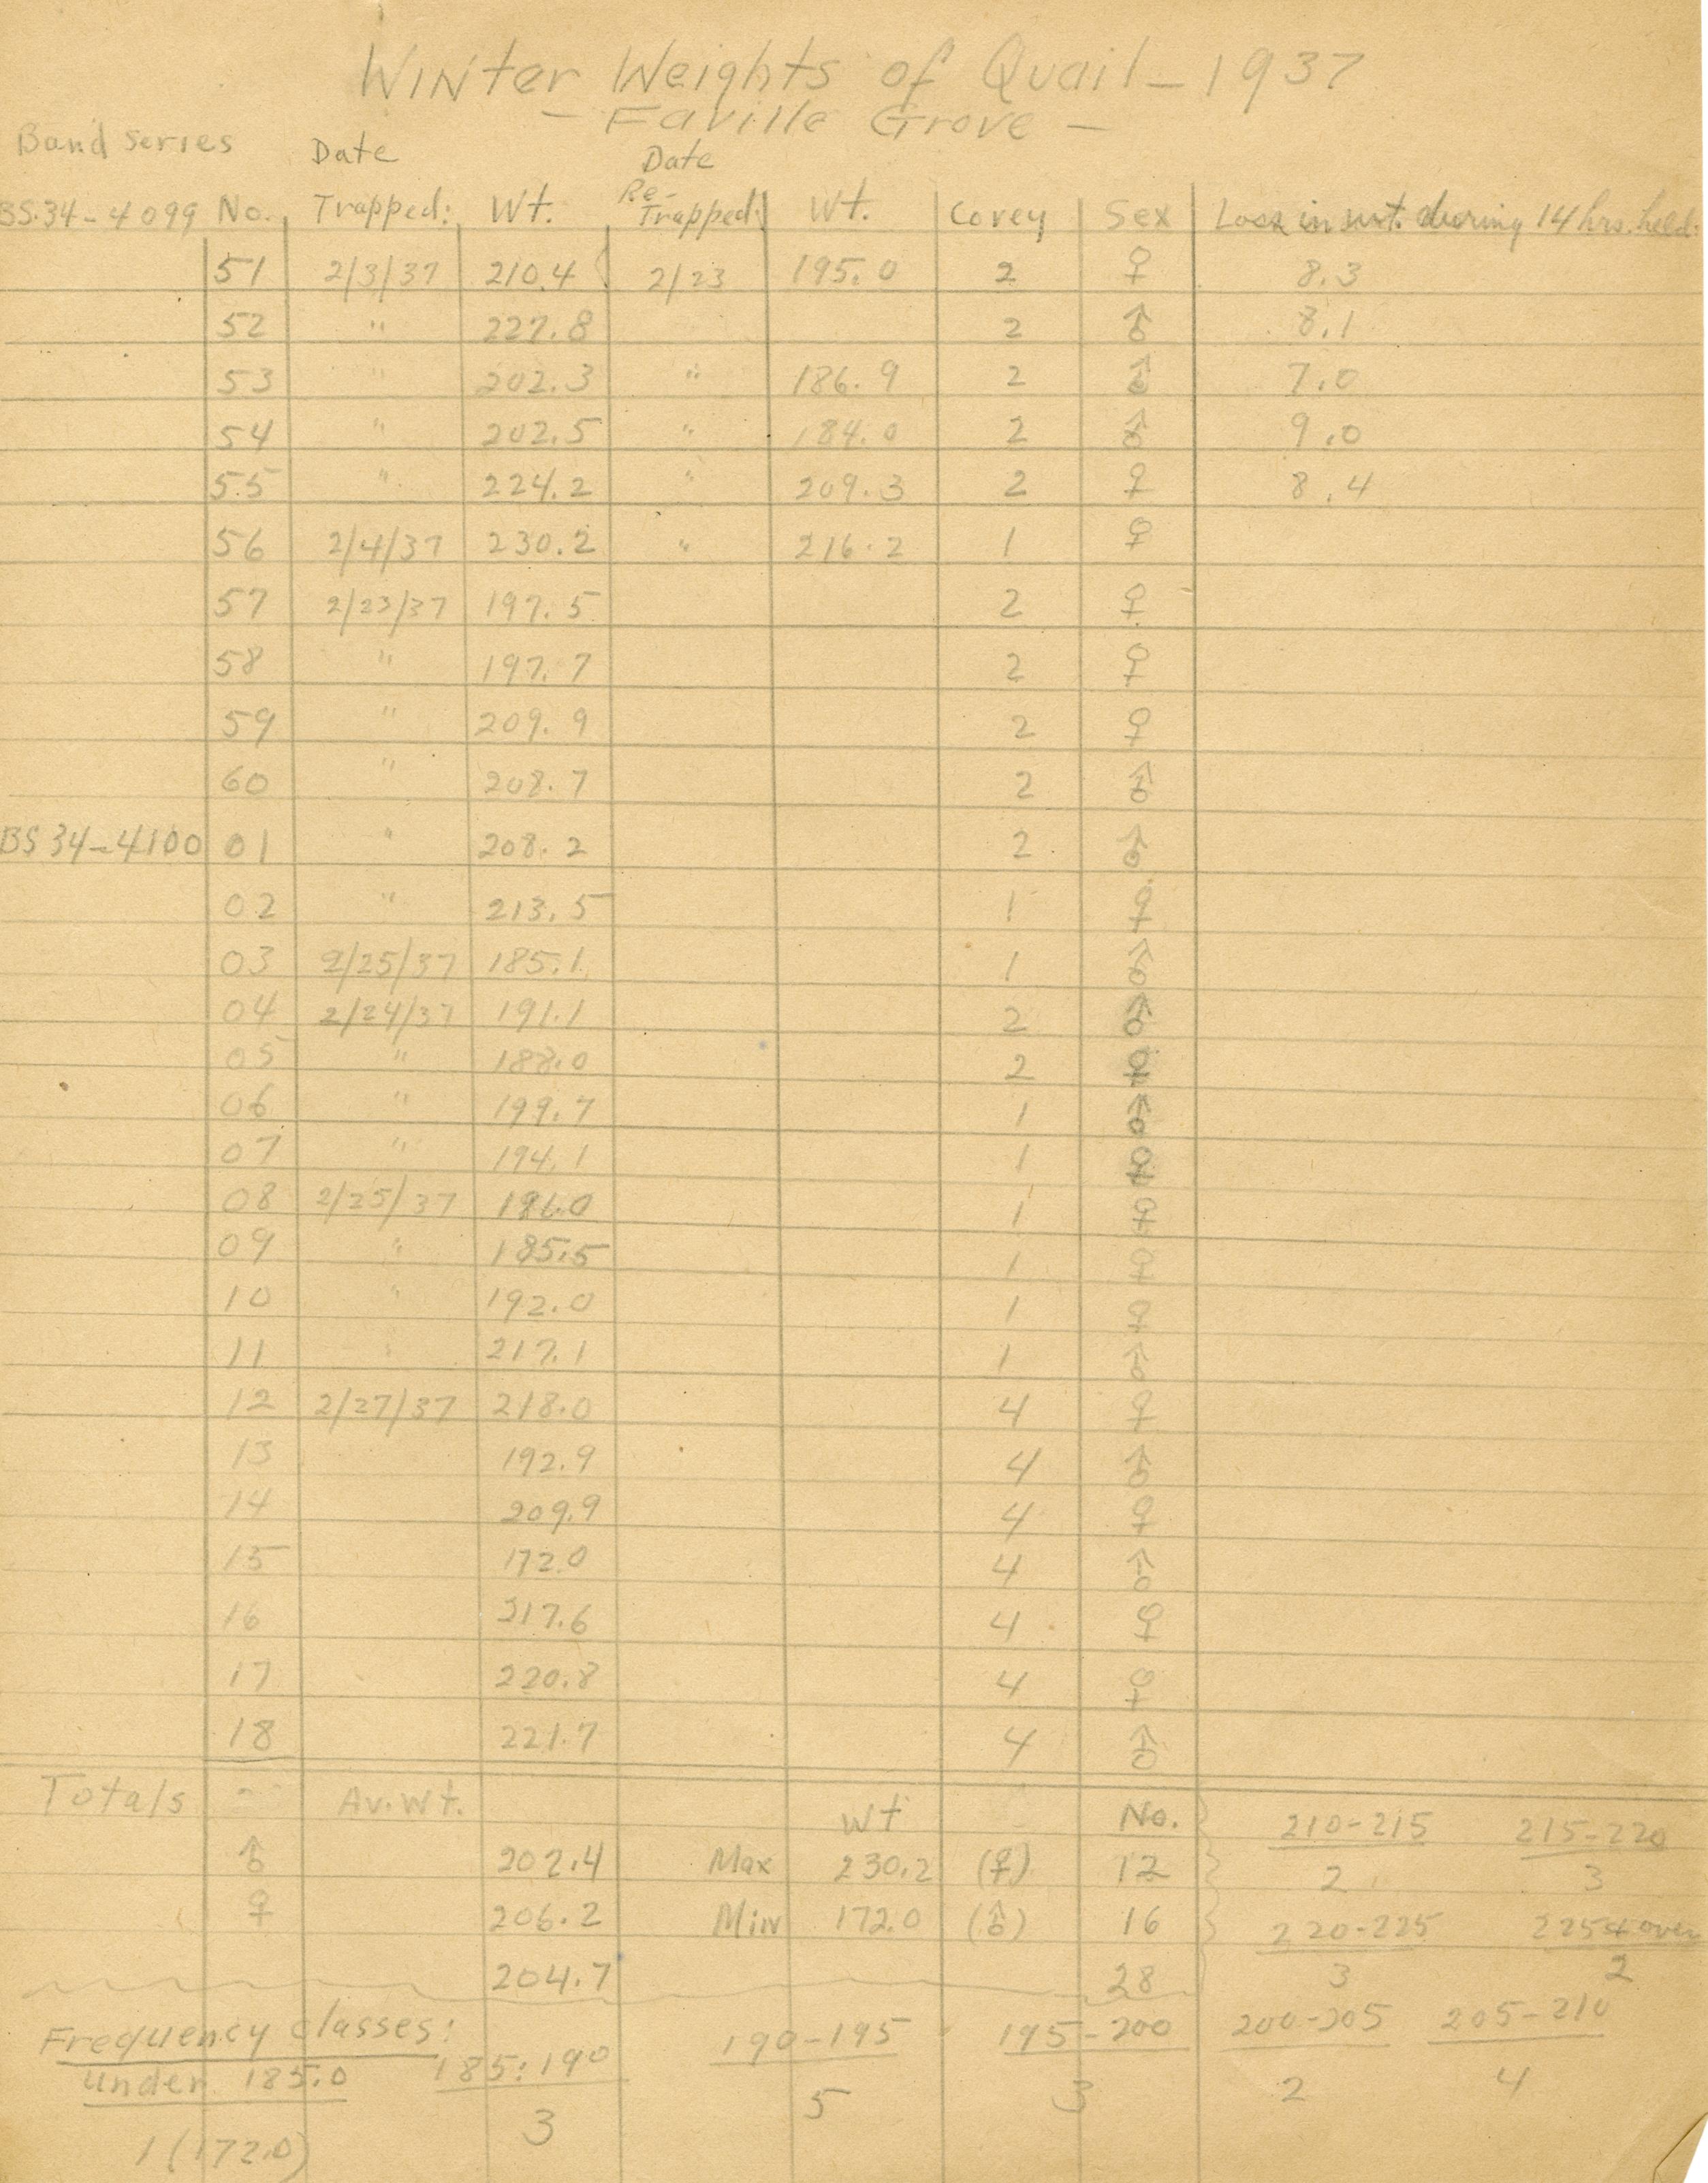 Winter Weights of Quail - 1937
- Faville Grove -
Band series Date Date
BS.34-4099 No. Trapped: Wt. Re-Trapped: Wt. Covey Sex Loss in wt. during 14 hrs. held:
51 2/3/37 210.4 2/23 195.0 2 ♀ 8.3
52 " 227.8 2 ♂ 8.1
53 " 202.3 " 186.9 2 ♂ 7.0
54 " 202.5 " 184.0 2 ♂ 9.0
55 " 224.2 " 209.3 2 ♀ 8.4
56 2/4/37 230.2 " 216.2 1 ♀
57 2/23/37 197.5 2 ♀
58 " 197.7 2 ♀
59 " 209.9 2 ♀
60 " 208.7 2 ♂
BS 34-4100 01 " 208.2 2 ♂
02 " 213.5 1 ♀
03 2/25/37 185.1 1 ♂
04 2/24/37 191.1 2 ♂
05 " 188.0 2 ♀
06 " 199.7 1 ♂
07 " 194.1 1 ♀
08 2/25/37 1 ♀
09 " 185.5 1 ♀
10 " 192.0 1 ♀
11 " 217.1 1 ♂
12 2/27/37 218.0 4 ♀
13 192.9 4 ♂
14 209.9 4 ♀
15 172.0 4 ♂
16 217.6 4 ♀
17 220.8 4 ♀
18 221.7 4 ♂
Totals - Av. Wt. Wt No. 210-215 215-220
♂ 202.4 Max 230.2 (♀) 12 2 3
♀ 206.2 Min 172.0 (♂) 16 220-225 225 & over
204.7 28 3 2
Frequency classes:
under 185.0 185:190 190-195 195-200 200-205 205-210
1 (172.0) 3 5 3 2 4